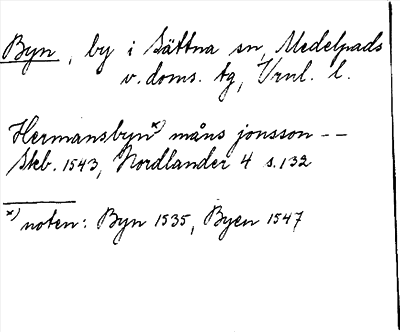 Byn, by i Sättna sn, Medelpads
v. doms. tg, Vrnl. l.
Hermansbyn*) måns jonsson --
Skb. 1543, Nordlander 4 s. 132
*) noten: Byn 1535, Byen 1547